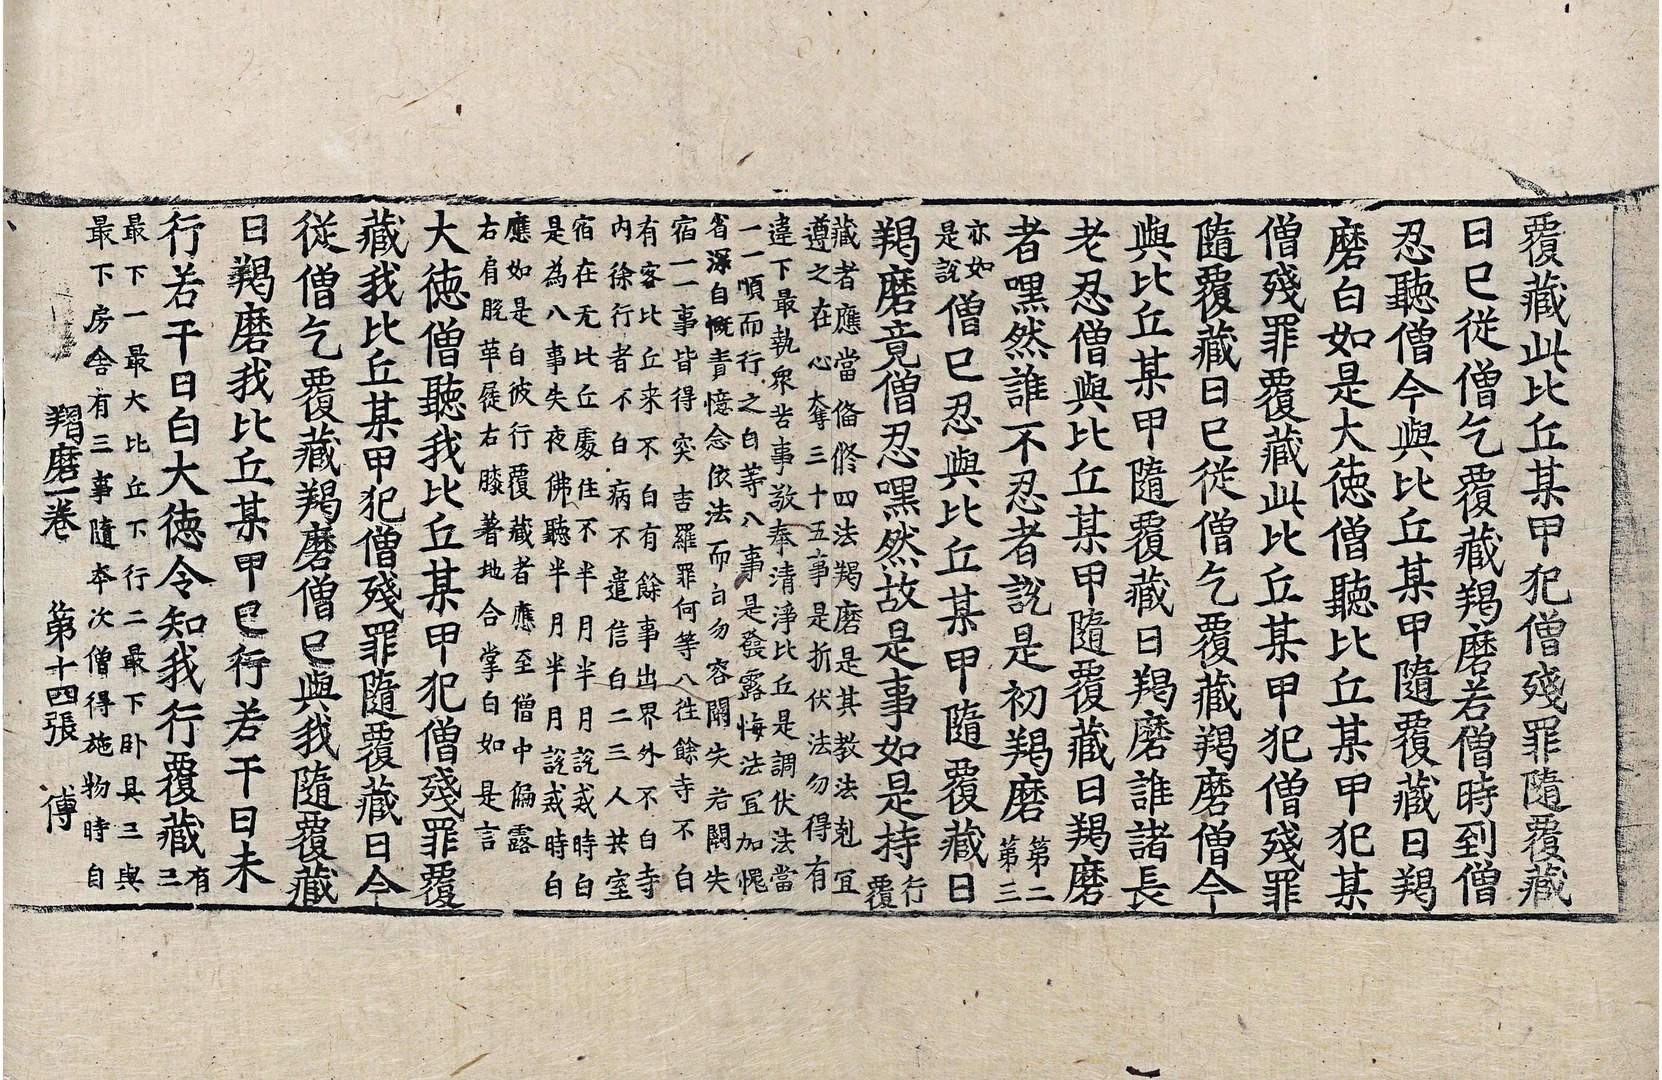 覆藏此比丘某甲犯僧殘罪隨覆藏
日已從僧乞覆藏羯磨若僧時到僧
忍聽僧今與比丘某甲隨覆藏日羯
磨白如是大徳僧聽比丘某甲犯某
僧殘罪覆藏此比丘某甲犯僧殘罪
隨覆藏日已從僧乞覆藏羯磨僧今
與比丘某甲隨覆藏日羯磨誰諸長
老忍僧與比丘某甲隨覆藏日羯磨
者嘿然誰不忍者說是初羯磨第二
第三
亦如
是說僧已忍與比丘某甲隨覆藏日
羯磨竟僧忍嘿然故是事如是持行
覆
藏者應當俻修四法羯磨是其教法剋冝
遵之在心奪三十五事是折伏法勿得有
違下最執衆苦事敬奉清淨比丘是調伏法當
一一順而行之白等八事是發露悔法冝加愧
省深自慨責憶念依法而白勿容闕失若闕失
宿一一事皆得突吉羅罪何等八徃餘寺不白
有客比丘来不白有餘事出界外不白寺
内徐行者不白病不遣信白二三人共室
宿在无比丘處住不半月半月說戒時白
是為八事失夜佛聽半月半月說戒時白
應如是白彼行覆藏者應至僧中偏露
右肩脫革屣右膝著地合掌白如是言
大徳僧聽我比丘某甲犯僧殘罪覆
藏我比丘某甲犯僧殘罪隨覆藏日今
從僧乞覆藏羯磨僧已與我隨覆藏
日羯磨我比丘某甲已行若干日未
行若干日白大徳令知我行覆藏有
三
最下一最大比丘下行二最下卧具三與
最下房舍有三事隨夲次僧得施物時自
羯磨一卷　第十四張　傅